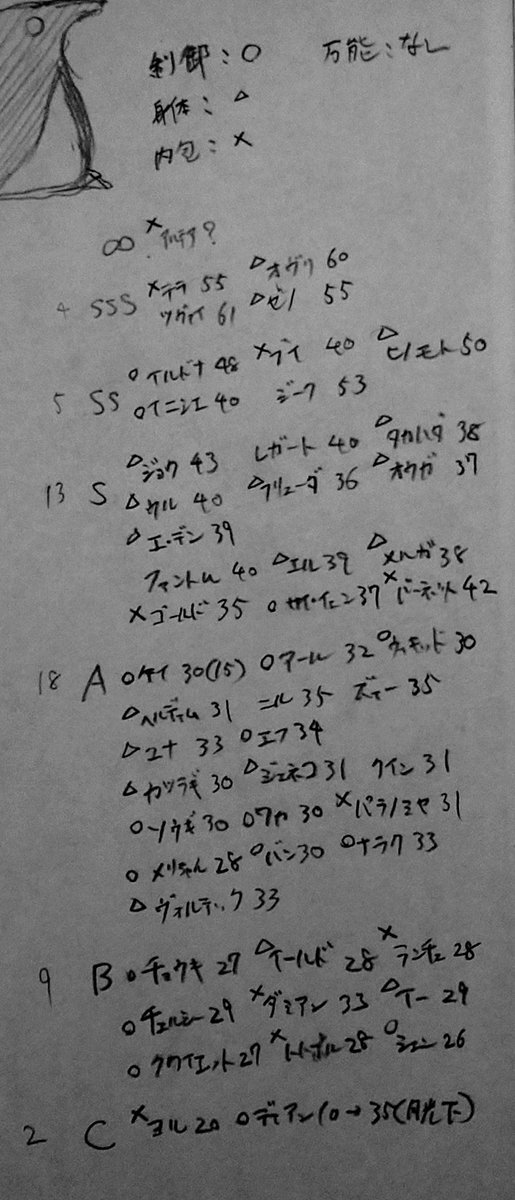 制御：○　万能：なし
身体：△
内包：×
∞ ×アルテア？
4 SSS ×テラ 55 △オグリ 60
ツヴァイ 61 △ゼノ 55
5 SS ○イルドナ 48 ×ブイ 40 △ヒノモト 50
○イニシエ 40 ジーク 53
13 S △ジョウ 43 レガート 40 △タカハダ 38
△ウル 40 △フリューダ 36 △オウガ 37
△エ・デン 39
ファントム 40 △エル 39 △メルガ 38
×ゴールド 35 ○サイ・イェン 37 ×バーネット 42
18 A ○ケイ 30(15) ○アール 32 ○ウィキッド 30
△ヘルディム 31 ニル 35 ズィー 35
△ユナ 33 ○エフ 34
△カツラギ 30 △ジェネコ 31 クイン 31
○ソウギ 30 ○フャ 30 ×パラノミヤ 31
○メリちゃん 28 ○バン 30 ○ナラク 33
△ヴォルテック 33
9 B ○チョウキ 27 △イールド 28 ×ランチェ 28
○チェルシー 29 ×ダミアン 33 △イー 29
○クワイエット 27 ×トトポル 28 ○ジュン 26
2 C ×ヨル 20 ○ディアン 10→35(月光下)